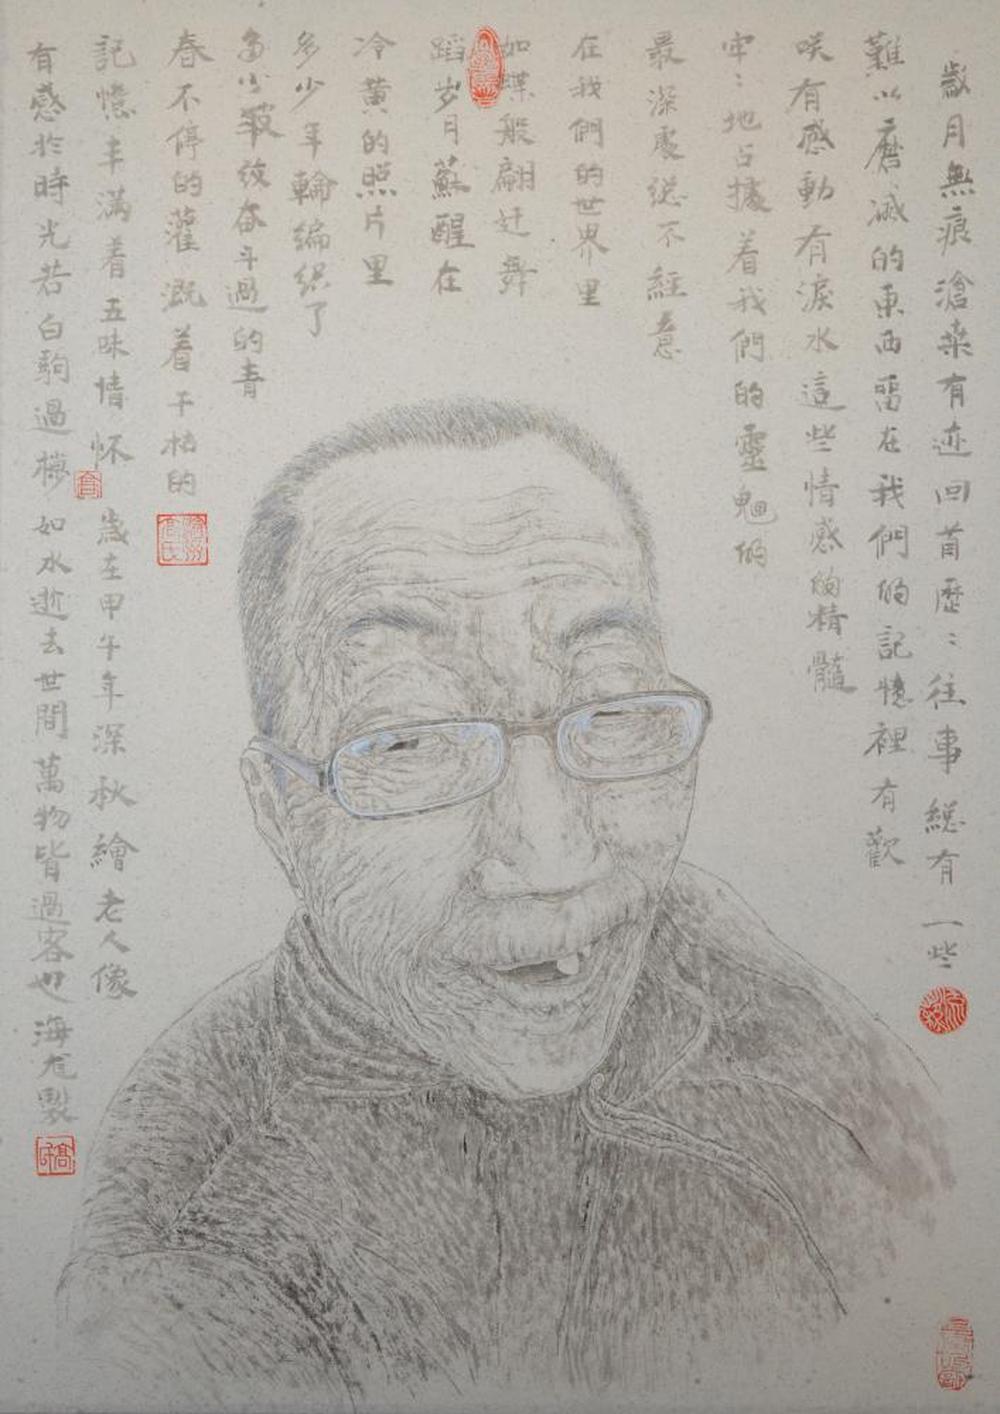 歲月無痕滄桑有迹回首歷：往事總有一些
難以磨滅的東西留在我們的記憶裡有歡
咲有感動有淚水這些情感的精髓
牢：地占據着我們的靈魂的
最深處總不經意
在我們的世界里
如蝶般翩迁舞
蹈岁月蘇醒在
冷黃的照片里
多少年輪编织了
多少皱纹奋斗過的青
春不停的灌溉着干枯的
記憶丰滿着五味情怀 歲在甲午年深秋繪老人像
有感於時光若白駒過樑如水逝去世間萬物皆過客也海龙製